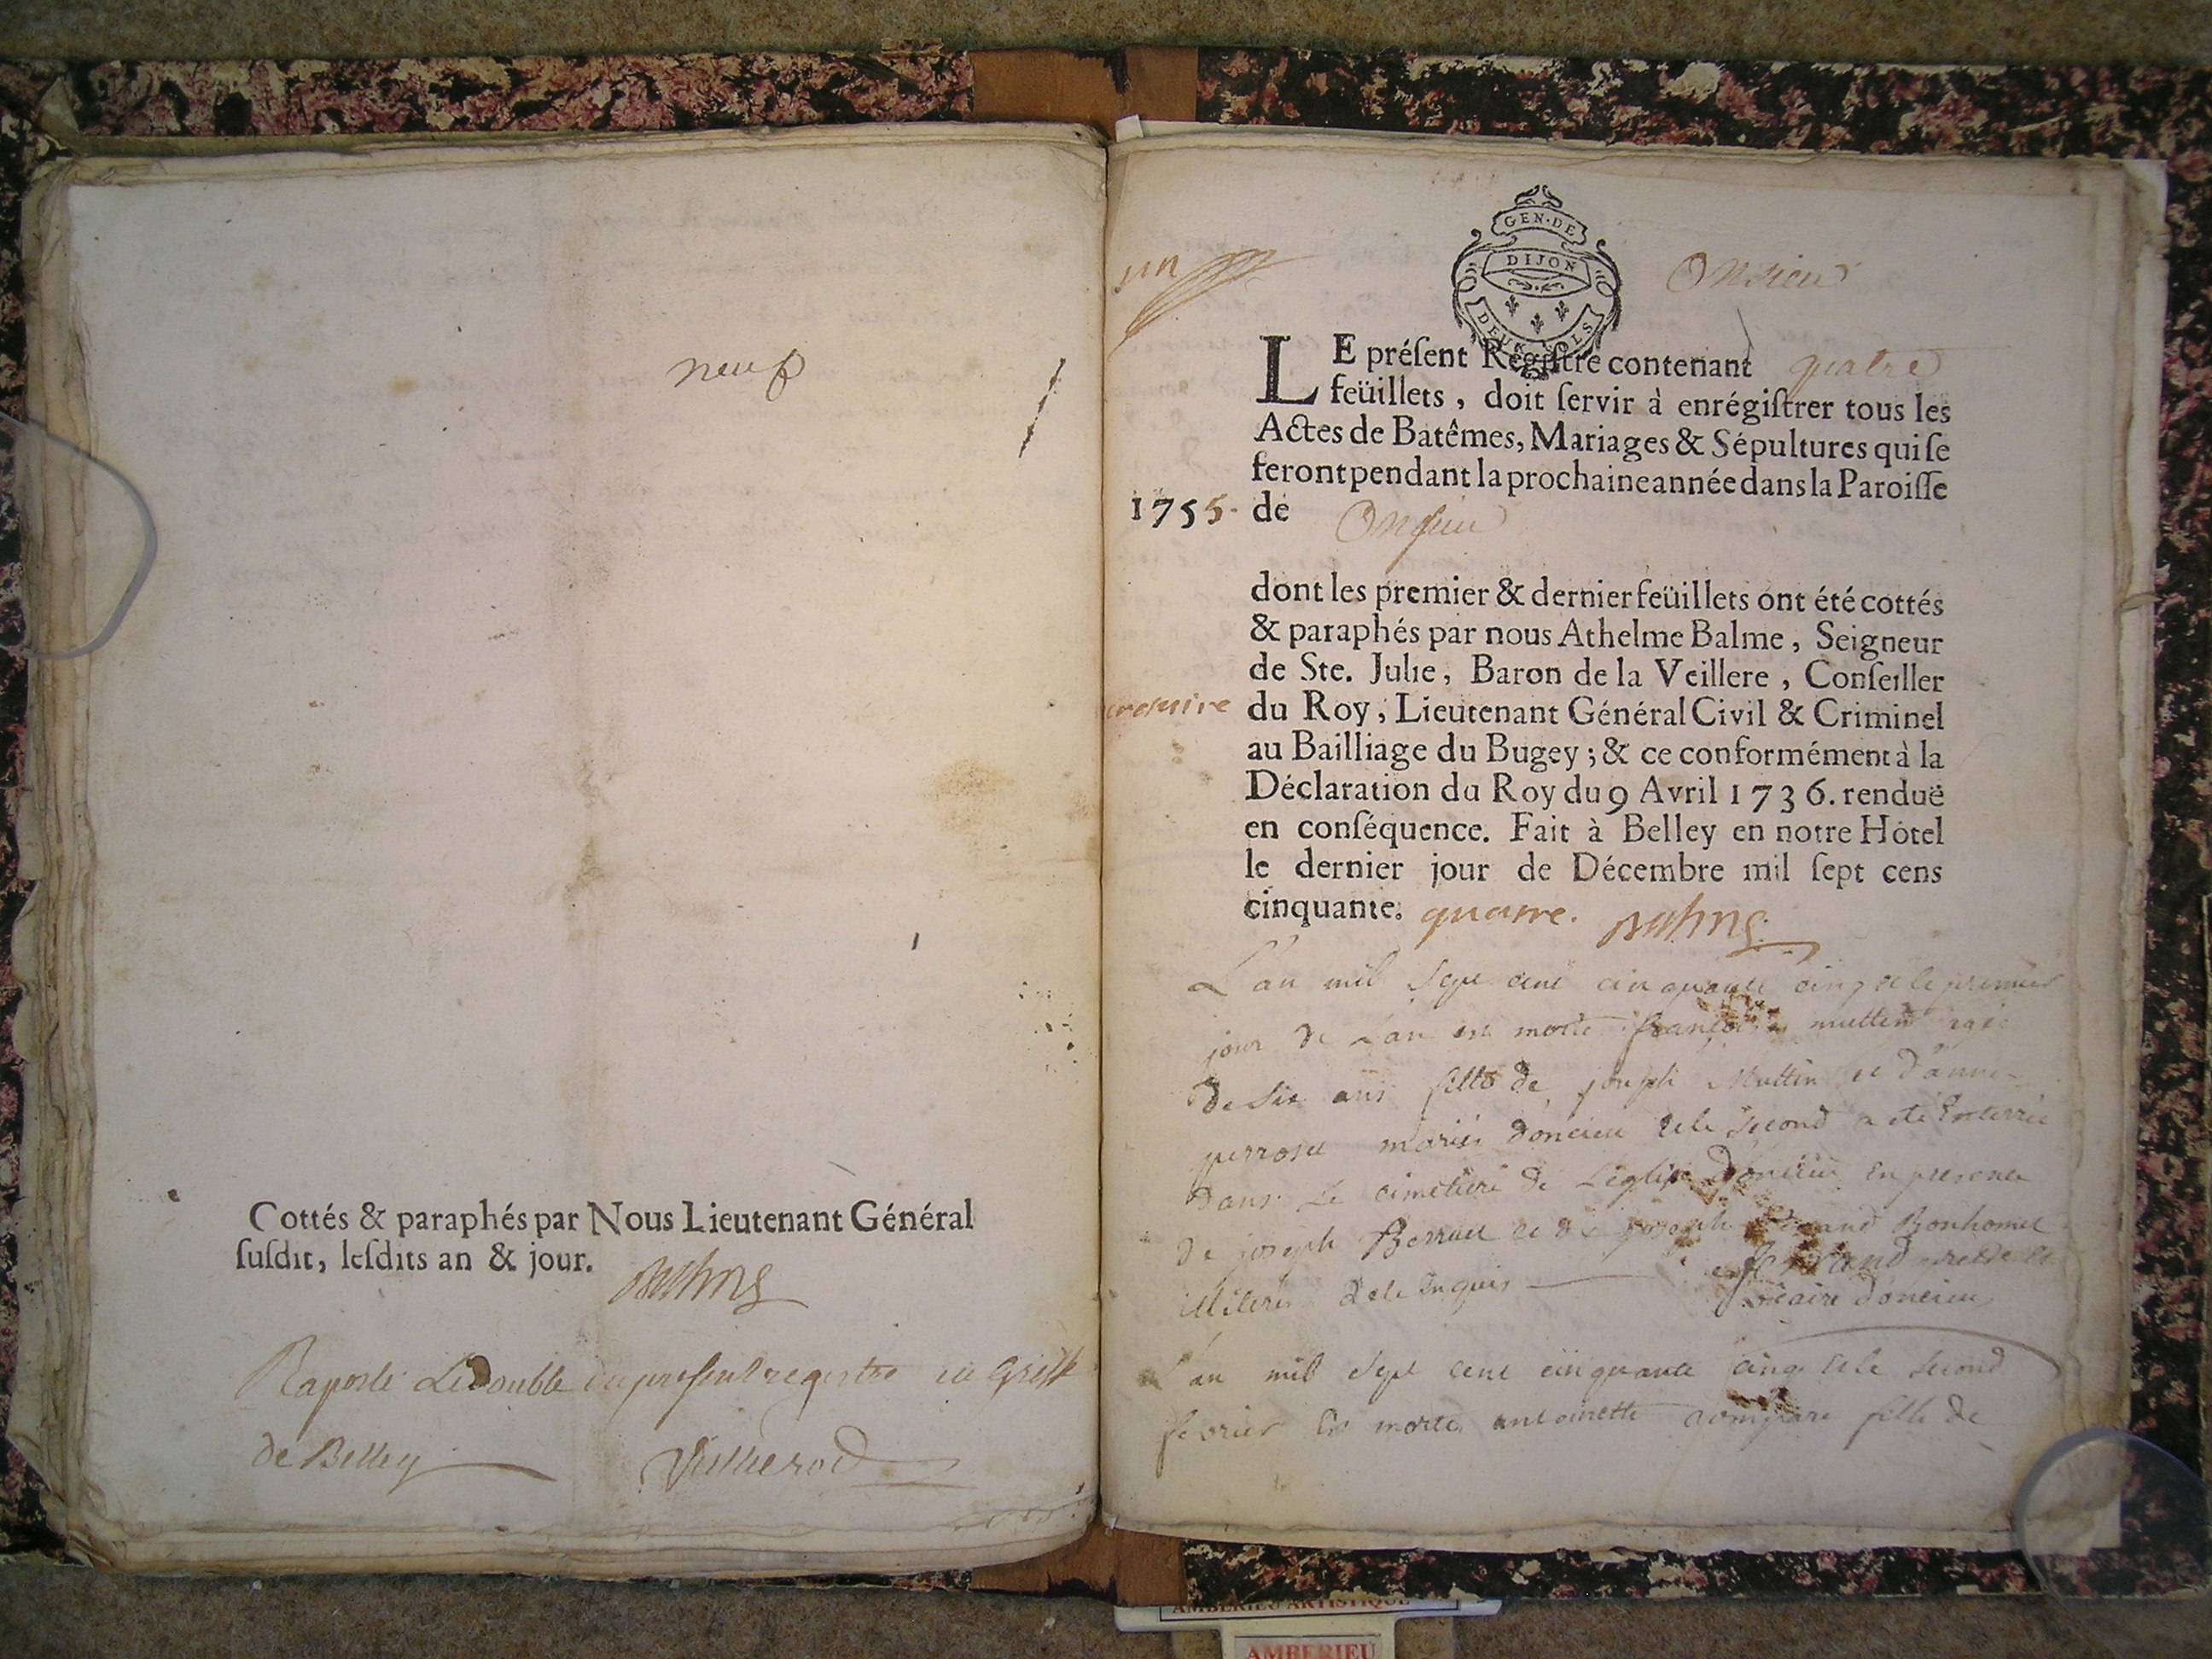 neuf
Cottés & paraphés par Nous Lieutenant Général
susdit, lesdits an & jour.
Balme
Raporté Le Double du present registre au Greffe
de Belley
un
GEN·DE
DIJON
DEUX SOLS
Oncieu
LE présent Régistre contenant quatre
feüillets, doit servir à enrégistrer tous les
Actes de Batêmes, Mariages & Sépultures qui se
feront pendant la prochaine année dans la Paroisse
1755. de Oncieu
dont les premier & dernier feüillets ont été cottés
& paraphés par nous Athelme Balme, Seigneur
de Ste. Julie, Baron de la Veillere, Conseiller
du Roy, Lieutenant Général Civil & Criminel
au Bailliage du Bugey; & ce conformément à la
Déclaration du Roy du 9 Avril 1736. renduë
en conséquence. Fait à Belley en notre Hôtel
le dernier jour de Décembre mil sept cens
cinquante. quatre. Balme
L'an mil sept cent cinquante cinq et le premier
jour de L'an est morte francoise muttin agée
de six ans fille de joseph Muttin et d'anne
perrosee mariés d'oncieu et le second a été Enterrée
dans Le cimetiere de L'eglise d'oncieu en presence
de joseph Berrod et de joseph Bonhomet
illiterés de ce Enquis
vicaire d'oncieu
L'an mil sept cent cinquante cinq et le second
fevrier Est morte antoinette compare fille de
AMBERIEU ARTISTIQUE
AMBERIEU